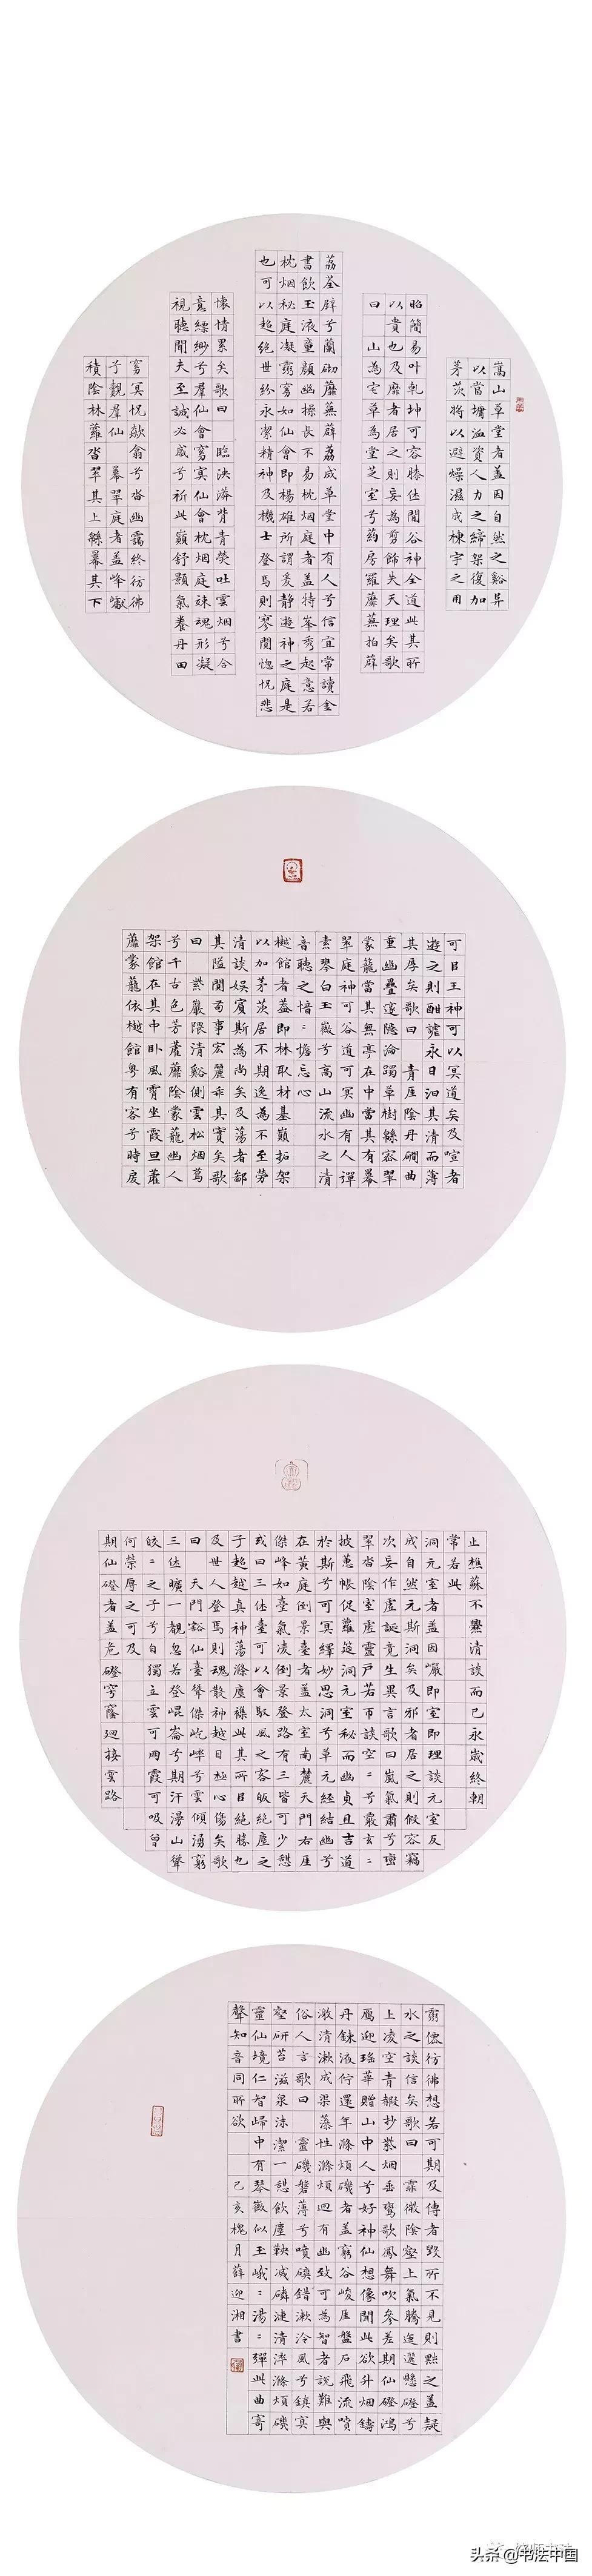 嵩山草堂者盖因自然之谿阜
以當墉洫資人力之締架復加
茅茨將以避燥濕成棟宇之用
昭簡易叶乾坤可容膝休閒谷神全道此其所
以貴也及靡者居之則妄為剪飾失天理矣歌
曰 山為宅草為堂芝室兮药房羅蘼蕪拍薜
荔荃辟兮蘭砌蘼蕪薜荔成草堂中有人兮信宜常讀金
書飲玉液童顏幽操長不易枕烟庭者盖特峯秀起意若
枕烟秘庭凝霛窅如仙會即楊雄所謂爰静遊神之庭是
也可以超絕世紛永潔精神及機士登焉則寥闃惚怳悲
懷情累矣歌曰 臨泱漭背青熒吐雲烟兮合
意縹緲兮羣仙會窅冥仙會枕烟庭竦魂形凝
視聽聞夫至誠必感兮祈此巔舒顥氣養丹田
窅冥怳歘翕兮沓幽靄終彷彿
子覿羣仙 羃翠庭者盖峰巘
積陰林蘿沓翠其上緜羃其下
可㠯王神可以冥道矣及喧者
遊之則酣謔永日汩其清而薄
其厚矣歌曰 青厓陰丹磵曲
重幽疊邃隱淪躅草樹緜容翠
蒙籠當其無亭在中當其有羃
翠庭神可谷道可冥幽有人彈
素琴白玉徽兮高山流水之清
音聽之愔=澹忘心
樾館者盖即林取材基巔拓架
以加茅茨居不期逸為不至勞
清談娱賓斯為尚矣及蕩者鄙
其隘閴苟事宏麗乖其實矣歌
曰 紫巖隈清谿側雲松烟蔦
兮千古色芳蘿蘼陰蒙蘢幽人
架館在其中卧風霄坐霞旦蘿
蘼蒙蘢依樾館粤有客兮時戾
止樵蘇不爨清談而已永歲終朝
常若此
洞元室者盖因巖即室即理談元室反
成自然元斯洞矣及邪者居之則假容竊
次妄作虛誕竟生異言歌曰嵐氣肅兮巖
翠沓陰室虛靈戶若帀談空=兮覈玄=
披蕙帳促蘿筵洞元室秘而幽貞且吉道
於斯兮可冥繹妙思洞兮草元經結幽兮
在黄庭倒景臺者盖太室南麓天門右厓
傑峰如臺氣凌倒景登路有三皆可少憩
或曰三休臺可以會馭風之客皈絕塵之
子超越真神蕩滌塵襟此其所㠯絕勝也
及世人登焉則魂散神越目極心傷矣歌
曰 天門豁仙臺聳傑屹崒兮雲傾湧窮
三休曠一覯忽若登崐崙兮期汗漫山聳
皎=之子兮自獨立雲可雨霞可吸曾
何榮辱之可及
期仙磴者盖危磴穹窿迴接雲路
霛僊彷彿想若可期及儔者毀所不見則黜之盖疑
水之談信矣歌曰 霏微陰壑上氣騰迤邐懸磴兮
上凌空青赮杪紫烟垂鸞歌鳳舞吹參差期仙磴鴻
鴈迎瑤華贈山中人兮好神仙想像聞此欲升烟鑄
丹鍊液佇還年滌煩磯者盖窮谷峻厓盤石飛流噴
激清漱成渠蕩性滌煩迴有幽致可為智者說難與
俗人言歌曰 靈磯磐薄兮噴磢錯漱泠風兮鎮冥
壑研苔滋泉沫潔一憩飲塵鞅滅磷漣清滓滌煩磯
靈仙境仁智歸中有琴徽似玉峨=湯=彈此曲寄
聲知音同所欲 己亥槐月薛迎湘書
头条@书法中国